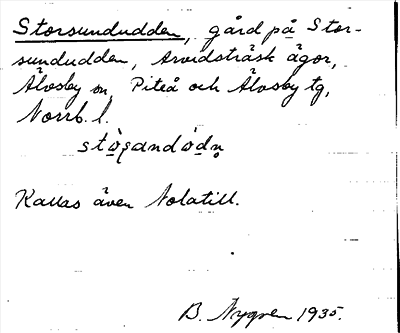 Storsundudden, gård på Stor-
sundudden, Arvidsträsk ägor,
Älvsby sn, Piteå och Älvsby tg,
Norrb. l.
stòṣandòdn̥
Kallas även Nolatill.
B. Nygren 1935.